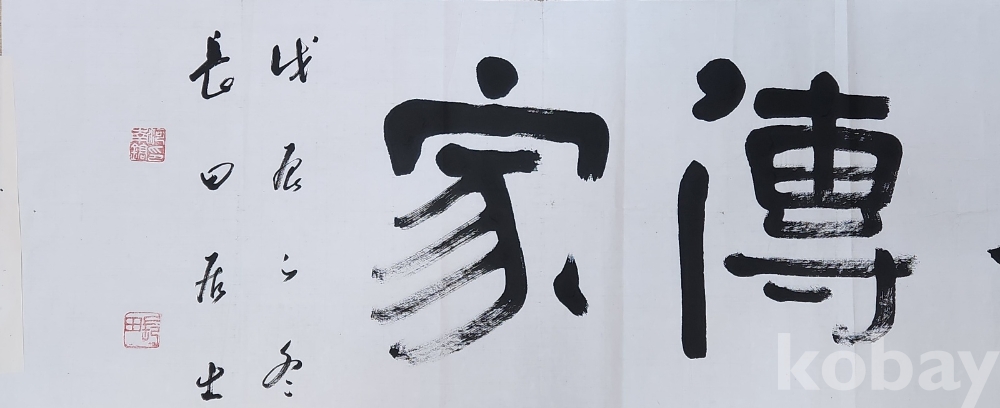 傳家
戊辰之冬
長田居士
長田
kobay